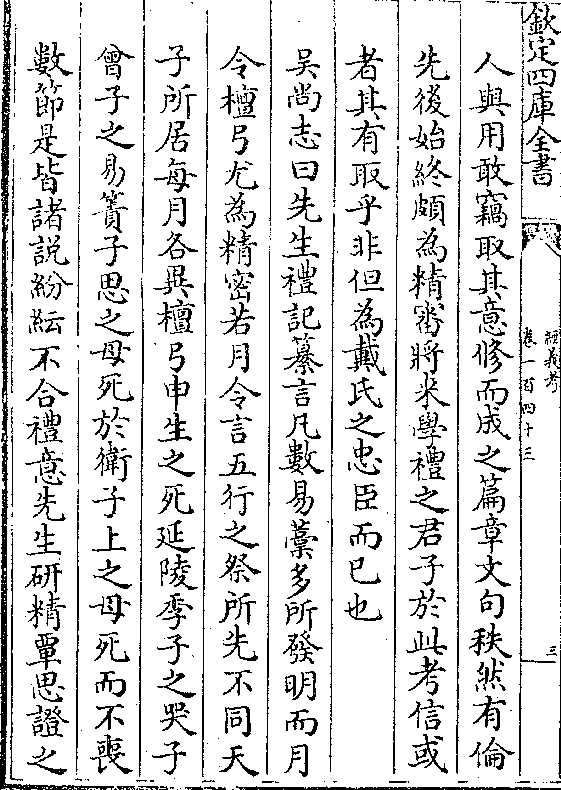 欽定四庫全書
經義考
卷一百四十三
三
人與用敢竊取其意修而成之篇章文句秩然有倫
先後始終頗為精審將來學禮之君子於此考信或
者其有取乎非但為戴氏之忠臣而已也
吳尚志曰先生禮記纂言凡數易藁多所發明而月
令檀弓尤為精密若月令言五行之祭所先不同天
子所居每月各異檀弓申生之死延陵季子之哭子
曾子之易簀子思之母死於衛子上之母死而不喪
數節是皆諸說紛紜不合禮意先生研精覃思證之